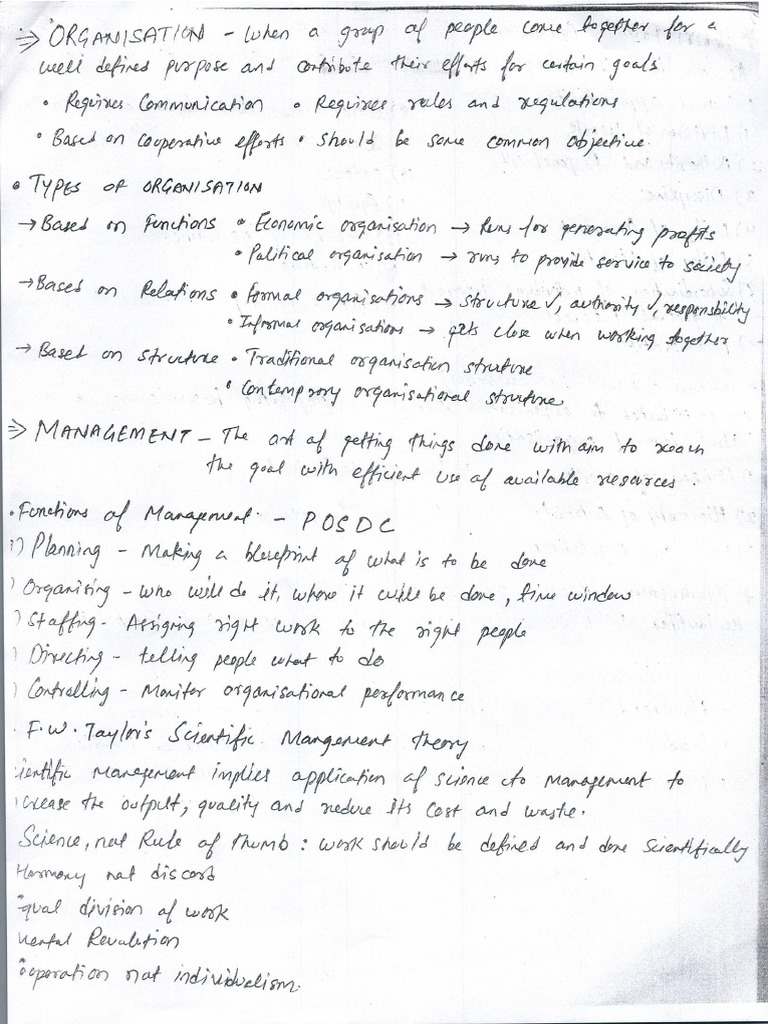 ⇒ ORGANISATION - When a group of people come together for a
well defined purpose and contribute their efforts for certain goals
• Requires Communication • Requires rules and regulations
• Based on cooperative efforts • Should be some common objective.
• TYPES OF ORGANISATION
→ Based on Functions • Economic organisation → Runs for generating profits
• Political organisation → runs to provide service to society
→ Based on Relations • Formal organisations → structure ✓, authority ✓, responsbility
• Informal organisations → gets close when working together
→ Based on structure • Traditional organisation struture
• Contemprory organisational struture
⇒ MANAGEMENT - The art of getting things done with aim to reach
the goal with efficient use of available resources.
• Functions of Management - POSDC
1) Planning - Making a blueprint of what is to be done
) Organising - who will do it, where it will be done, time window
) Staffing - Assigning right work to the right people
) Directing - telling people what to do
) Controlling - Monitor organisational performance
. F.W. Taylor's Scientific Mangement theory
ientific Management implies application of science to Management to
crease the output, quality and reduce its cost and waste.
Science, not Rule of thumb : work should be defined and done scientifically
Harmony not discord
qual division of work
Mental Revolution
ooperation not individualism.